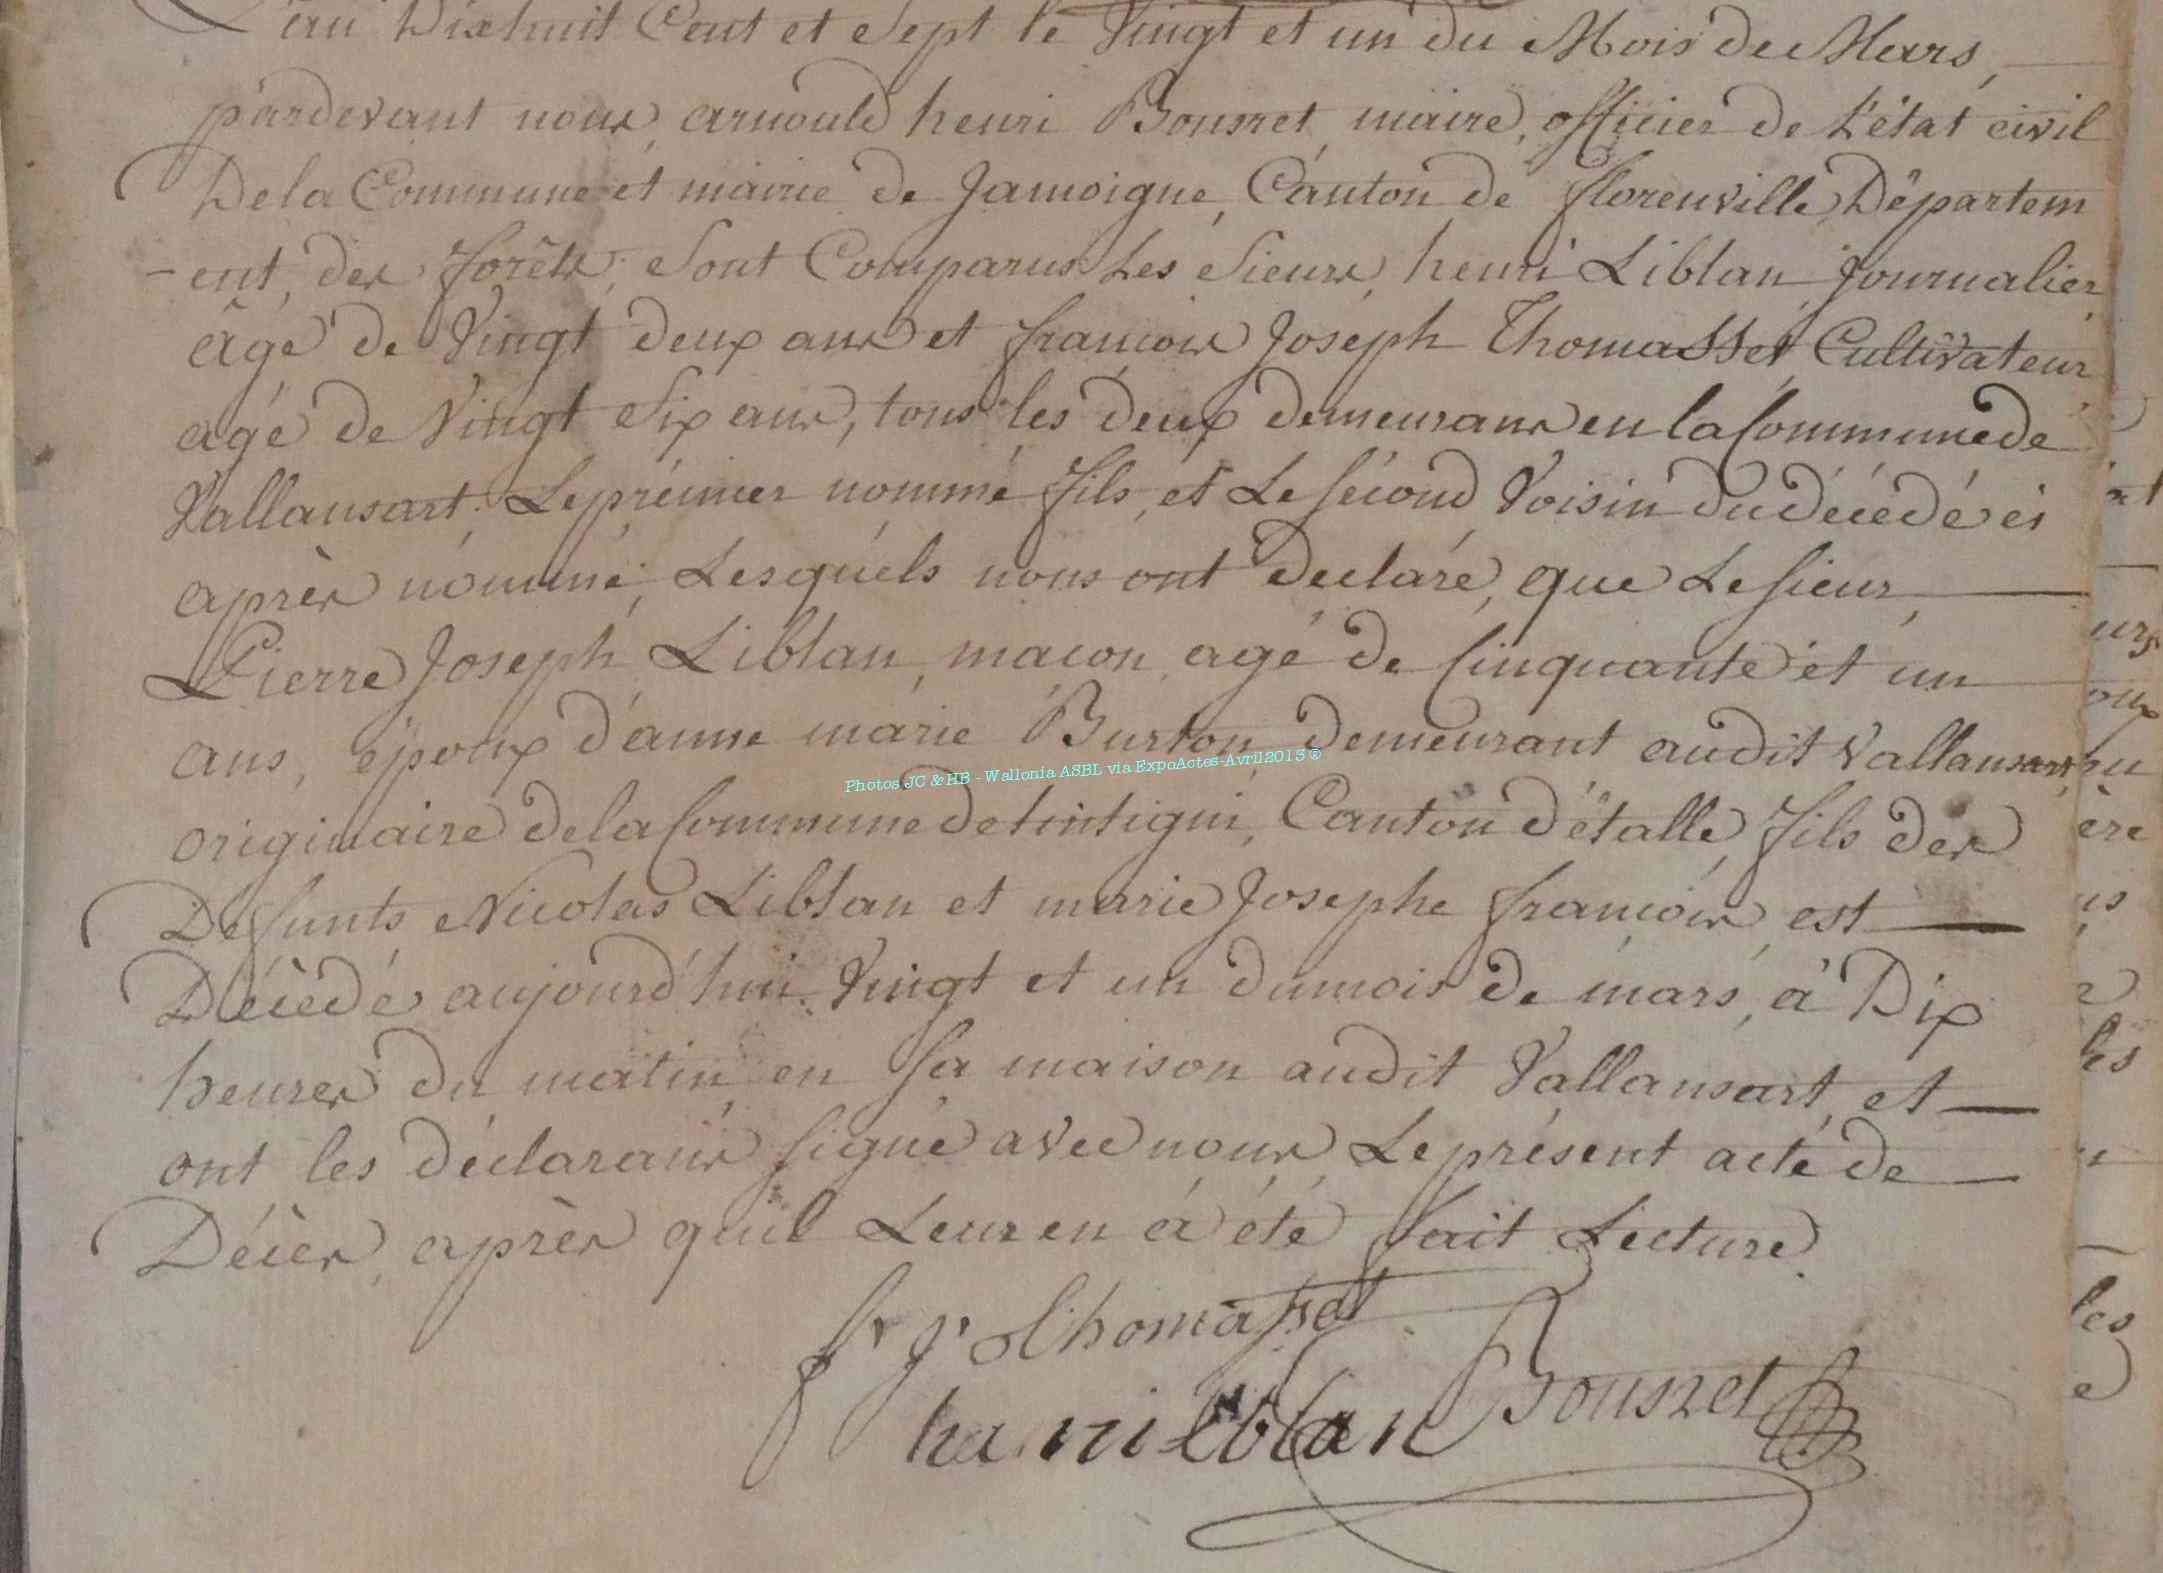 L'an Dixhuit Cent et Sept le Vingt et un du Mois de Mars,
pardevant nous, arnould henri Bousret, maire, officier de L'état civil
De la Commune et mairie de Jamoigne, Canton de florenville, Départem
-ent, des forêts, Sont Comparus Les Sieurs, henri Liblan, journalier,
âgé de Vingt deux ans et francois Joseph Thomasset, Cultivateur
agé de Vingt Six ans, tous les deux demeurans en la Commune de
Vallansart, Le prémier nommé fils, et Le sécond Voisin du décédé ci
après nommé, Lesquels nous ont declaré, que Le sieur,
Pierre Joseph Liblan, macon, agé de Cinquante et un
ans, époux d'anne marie Burton, demeurant audit Vallansart,
originaire de la Commune de tintigni, Canton d'étalle, fils des
Defunts Nicolas Liblan et marie Josephe francois, est
Décédé aujourd'hui Vingt et un du mois de mars, à Dix
heures du matin, en sa maison audit Vallansart, et
ont les déclarans signé avec nous, Le présent acte de
Décès, après qu'il Leur en à été fait Lecture.
fr J' thomasset
hanri liblan Bousret
Photos JC & HB - Wallonia ASBL via ExpoActes-Avril2015 ©